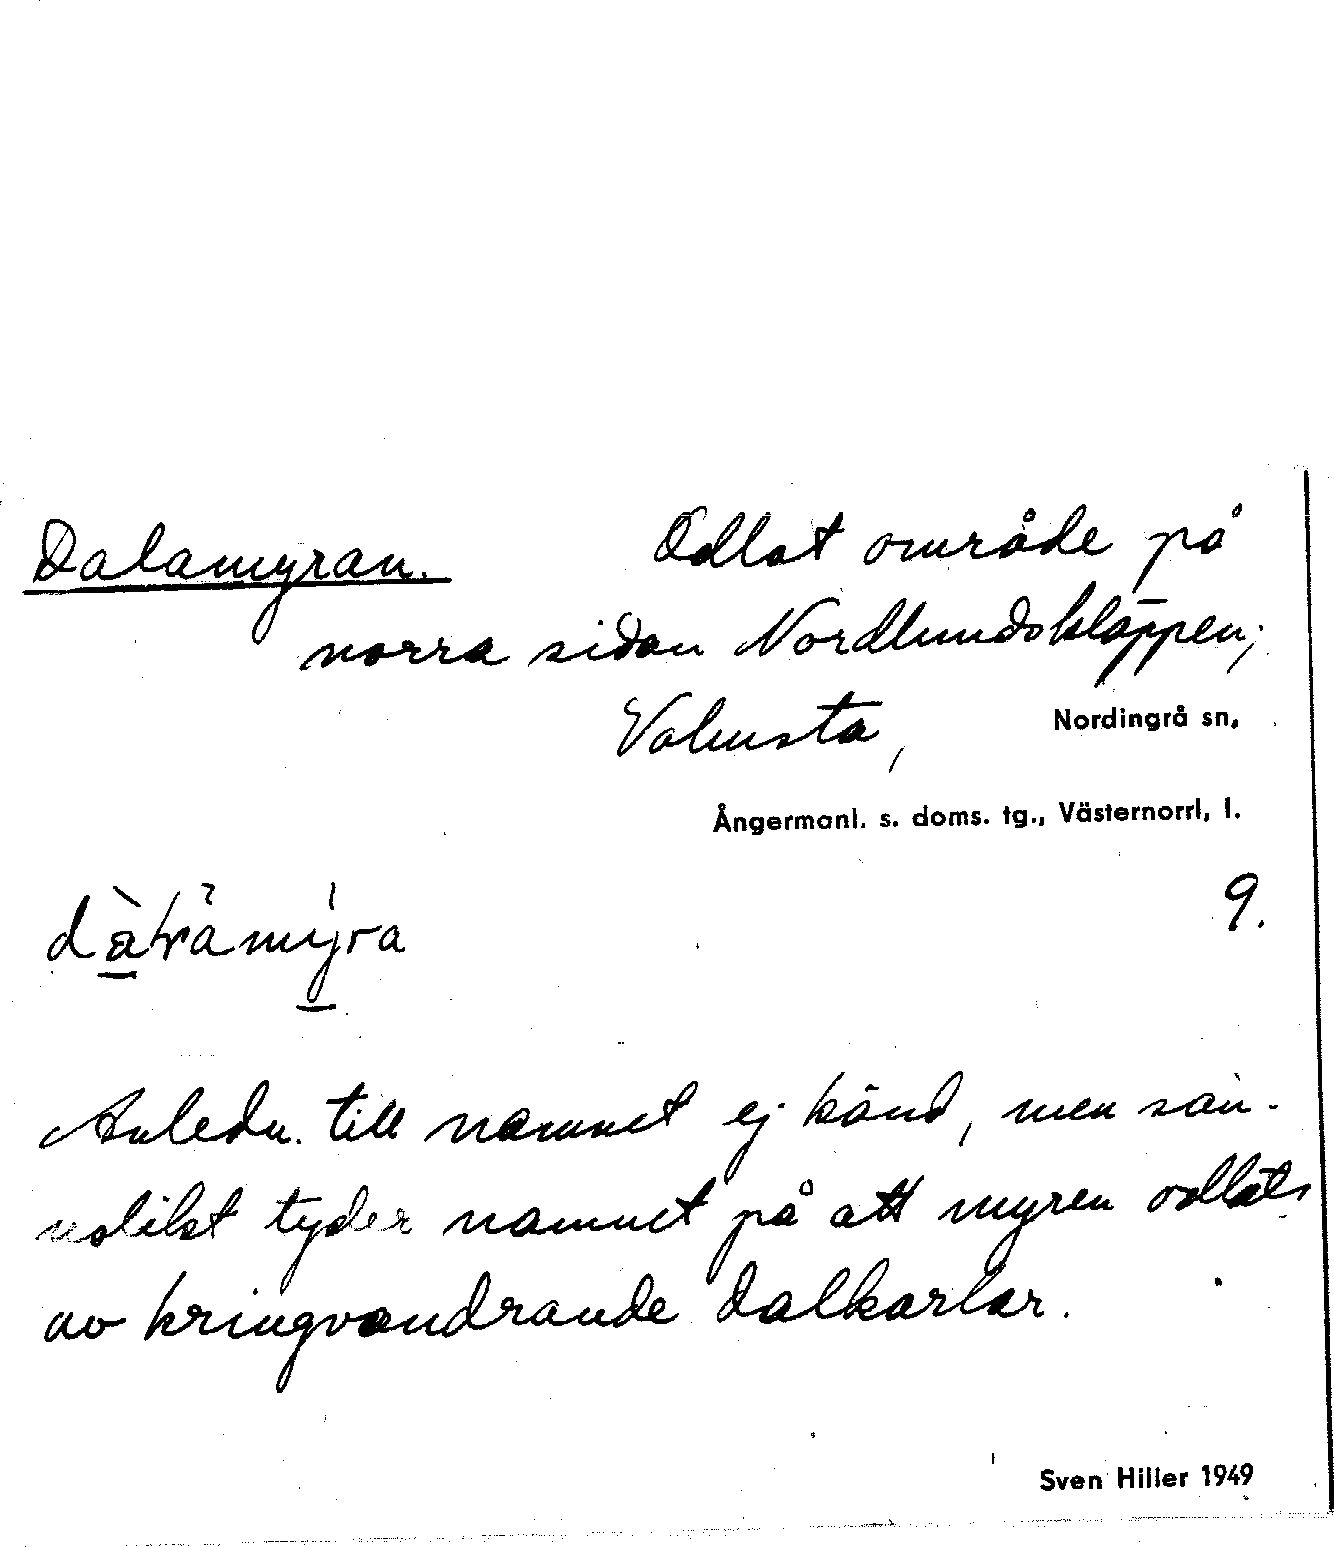 Dalamyran. Odlat område på
norra sidan Nordlundskläppen;
Valmsta, Nordingrå sn,
Ångermanl. s. doms. tg., Västernorrl, l.
9.
Anledn. till namnet ej känd, men san-
nolikt tyder namnet på att myren odlats
av kringvandrande dalkarlar.
Sven Hiller 1949